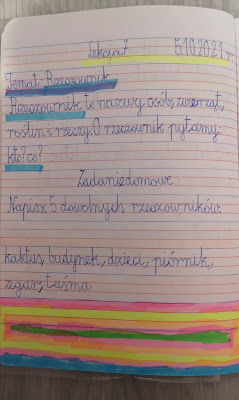 Lekcja 7 5.10.2021 r.
Temat: Rzeczownik.
Rzeczownik to nazwy osób, zwierząt,
roślin i rzeczy. O rzeczownik pytamy:
kto? co?
Zadanie domowe
Napisz 5 dowolnych rzeczowników.
kaktus, budynek, dzieci, piórnik,
zegar, taśma